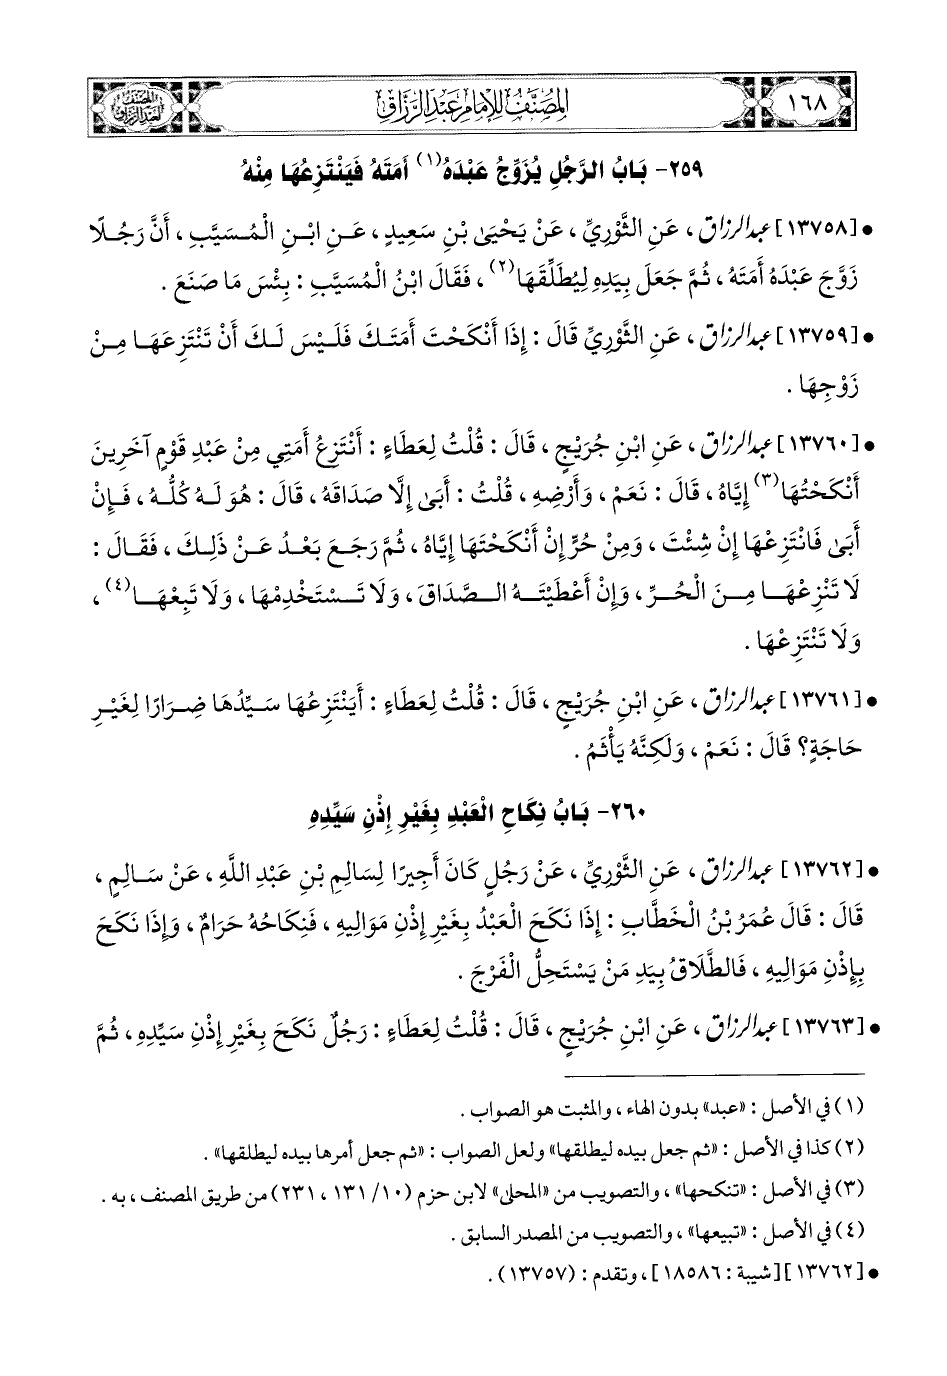 ١٦٨
المصنف للإمام عبد الرزاق
٢٥٩- بَابُ الرَّجُلِ يُزَوِّجُ عَبْدَهُ(١) أَمَتَهُ فَيَنْتَزِعُهَا مِنْهُ
• [١٣٧٥٨] عبد الرزاق ، عَنِ الثَّوْرِيِّ ، عَنْ يَحْيَى بْنِ سَعِيدٍ ، عَنِ ابْنِ الْمُسَيَّبِ ، أَنَّ رَجُلًا
زَوَّجَ عَبْدَهُ أَمَتَهُ ، ثُمَّ جَعَلَ بِيَدِهِ لِيُطَلِّقَهَا(٢) ، فَقَالَ ابْنُ الْمُسَيَّبِ : بِئْسَ مَا صَنَعَ .
• [١٣٧٥٩] عبد الرزاق ، عَنِ الثَّوْرِيِّ قَالَ : إِذَا أَنْكَحْتَ أَمَتَكَ فَلَيْسَ لَكَ أَنْ تَنْتَزِعَهَا مِنْ
زَوْجِهَا .
• [١٣٧٦٠] عبد الرزاق ، عَنِ ابْنِ جُرَيْجٍ ، قَالَ : قُلْتُ لِعَطَاءٍ : أَنْتَزِعُ أَمَتِي مِنْ عَبْدِ قَوْمٍ آخَرِينَ
أَنْكَحْتُهَا(٣) إِيَّاهُ ، قَالَ : نَعَمْ ، وَأَرْضِهِ ، قُلْتُ : أَبَى إِلَّا صَدَاقَهُ ، قَالَ : هُوَ لَهُ كُلُّهُ ، فَإِنْ
أَبَى فَانْتَزِعْهَا إِنْ شِئْتَ ، وَمِنْ حُرٍّ إِنْ أَنْكَحْتَهَا إِيَّاهُ ، ثُمَّ رَجَعَ بَعْدُ عَنْ ذَلِكَ ، فَقَالَ :
لَا تَنْزِعْهَا مِنَ الْحُرِّ ، وَإِنْ أَعْطَيْتَهُ الصَّدَاقَ ، وَلَا تَسْتَخْدِمْهَا ، وَلَا تَبِعْهَا(٤) ،
وَلَا تَنْتَزِعْهَا .
• [١٣٧٦١] عبد الرزاق ، عَنِ ابْنِ جُرَيْجٍ ، قَالَ : قُلْتُ لِعَطَاءٍ : أَيَنْتَزِعُهَا سَيِّدُهَا ضِرَارًا لِغَيْرِ
حَاجَةٍ؟ قَالَ : نَعَمْ ، وَلَكِنَّهُ يَأْثَمُ .
٢٦٠- بَابُ نِكَاحِ الْعَبْدِ بِغَيْرِ إِذْنِ سَيِّدِهِ
• [١٣٧٦٢] عبد الرزاق ، عَنِ الثَّوْرِيِّ ، عَنْ رَجُلٍ كَانَ أَجِيرًا لِسَالِمِ بْنِ عَبْدِ اللَّهِ ، عَنْ سَالِمٍ ،
قَالَ : قَالَ عُمَرُ بْنُ الْخَطَّابِ : إِذَا نَكَحَ الْعَبْدُ بِغَيْرِ إِذْنِ مَوَالِيهِ ، فَنِكَاحُهُ حَرَامٌ ، وَإِذَا نَكَحَ
بِإِذْنِ مَوَالِيهِ ، فَالطَّلَاقُ بِيَدِ مَنْ يَسْتَحِلُّ الْفَرْجَ .
• [١٣٧٦٣] عبد الرزاق ، عَنِ ابْنِ جُرَيْجٍ ، قَالَ : قُلْتُ لِعَطَاءٍ : رَجُلٌ نَكَحَ بِغَيْرِ إِذْنِ سَيِّدِهِ ، ثُمَّ
(١) في الأصل : «عبد» بدون الهاء ، والمثبت هو الصواب .
(٢) كذا في الأصل : «ثم جعل بيده ليطلقها» ولعل الصواب : «ثم جعل أمرها بيده ليطلقها» .
(٣) في الأصل : «تنكحها» ، والتصويب من «المحلى» لابن حزم (١٠/ ١٣١ ، ٢٣١) من طريق المصنف ، به .
(٤) في الأصل : «تبيعها» ، والتصويب من المصدر السابق .
• [١٣٧٦٢] [شيبة : ١٨٥٨٦] ، وتقدم : (١٣٧٥٧) .